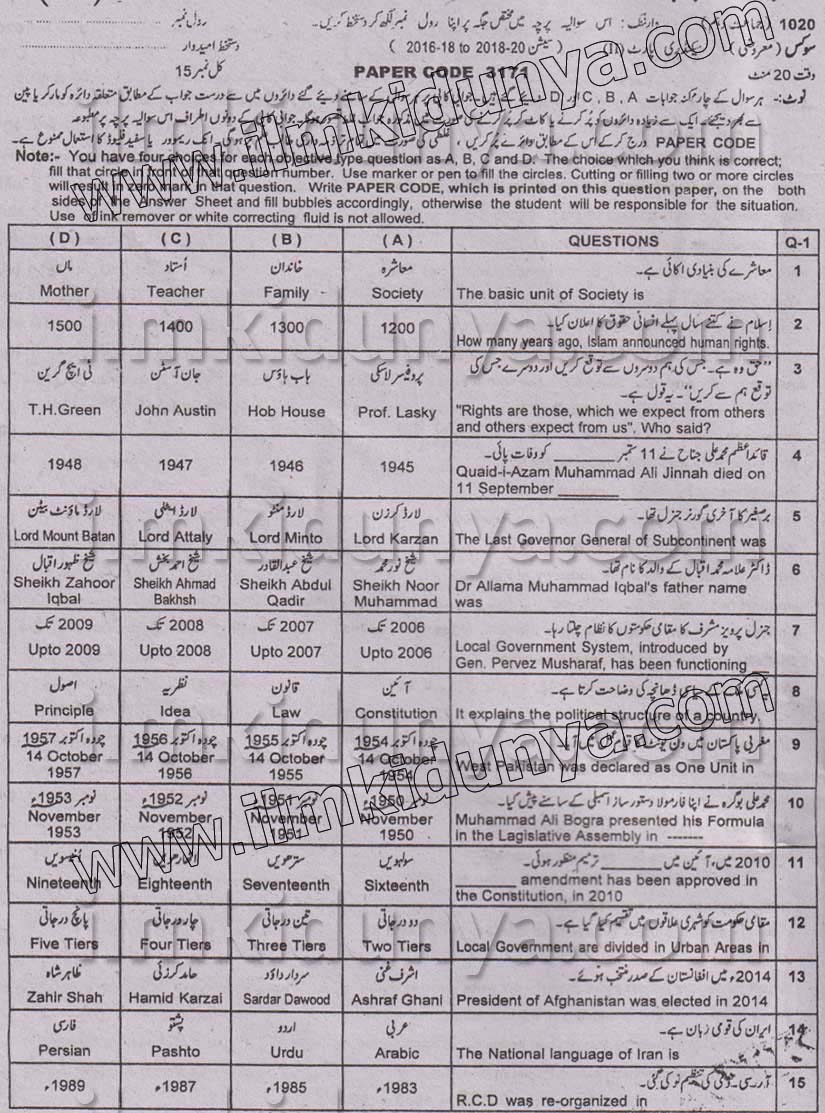 1020
وارننگ: اس سوالیہ پرچہ میں مختص جگہ پر اپنا رول نمبر لکھ کر دستخط کریں۔
رول نمبر
سوکس (معروضی)
(سیشن 2016-18 to 2018-20)
دستخط امیدوار
وقت 20 منٹ
PAPER CODE 3171
کل نمبر 15
نوٹ:- ہر سوال کے چار ممکنہ جوابات A، B، C اور D
PAPER CODE
Note:- You have four choices for each objective type question as A, B, C and D. The choice which you think is correct;
fill that circle in front of that question number. Use marker or pen to fill the circles. Cutting or filling two or more circles
will result in zero mark in that question. Write PAPER CODE, which is printed on this question paper, on the both
sides of the Answer Sheet and fill bubbles accordingly, otherwise the student will be responsible for the situation.
Use of ink remover or white correcting fluid is not allowed.
(D) (C) (B) (A) QUESTIONS Q-1
ماں استاد خاندان معاشرہ معاشرے کی بنیادی اکائی ہے۔ 1
Mother Teacher Family Society The basic unit of Society is
1500 1400 1300 1200 اسلام نے کتنے سال پہلے انسانی حقوق کا اعلان کیا۔ 2
How many years ago, Islam announced human rights.
ٹی ایچ گرین جان آسٹن ہاب ہاؤس پروفیسر لاسکی "حق وہ ہے۔ جس کی ہم دوسروں سے توقع کریں اور دوسرے جس کی 3
توقع ہم سے کریں"۔ یہ قول ہے۔
T.H.Green John Austin Hob House Prof. Lasky "Rights are those, which we expect from others
and others expect from us". Who said?
1948 1947 1946 1945 قائداعظم محمد علی جناح نے 11 ستمبر ________ کو وفات پائی۔ 4
Quaid-i-Azam Muhammad Ali Jinnah died on
11 September ________
لارڈ ماؤنٹ بیٹن لارڈ اٹلی لارڈ منٹو لارڈ کرزن برصغیر کا آخری گورنر جنرل تھا۔ 5
Lord Mount Batan Lord Attaly Lord Minto Lord Karzan The Last Governor General of Subcontinent was
شیخ ظہور اقبال شیخ احمد بخش شیخ عبدالقادر شیخ نور محمد ڈاکٹر علامہ محمد اقبال کے والد کا نام تھا۔ 6
Sheikh Zahoor Iqbal Sheikh Ahmad Bakhsh Sheikh Abdul Qadir Sheikh Noor Muhammad Dr Allama Muhammad Iqbal's father name
was
2009 تک 2008 تک 2007 تک 2006 تک جنرل پرویز مشرف کا مقامی حکومتوں کا نظام چلتا رہا۔ 7
Upto 2009 Upto 2008 Upto 2007 Upto 2006 Local Government System, introduced by
Gen. Pervez Musharaf, has been functioning __
اصول نظریہ قانون آئین ڈھانچہ کی وضاحت کرتا ہے۔ 8
Principle Idea Law Constitution It explains the political structure of a country.
چودہ اکتوبر 1957 چودہ اکتوبر 1956 چودہ اکتوبر 1955 چودہ اکتوبر 1954 مغربی پاکستان میں ون یونٹ 9
14 October 1957 14 October 1956 14 October 1955 14 October 1954 West Pakistan was declared as One Unit in
نومبر 1953ء نومبر 1952ء نومبر 1951ء نومبر 1950ء محمد علی بوگرہ نے اپنا فارمولا دستور ساز اسمبلی کے سامنے پیش کیا۔ 10
November 1953 November 1952 November 1951 November 1950 Muhammad Ali Bogra presented his Formula
in the Lagislative Assembly in -------
انیسویں اٹھارھویں سترھویں سولہویں 2010 میں، آئین میں ________ ترمیم منظور ہوئی۔ 11
Nineteenth Eighteenth Seventeenth Sixteenth ______ amendment has been approved in
the Constitution, in 2010
پانچ درجاتی چار درجاتی تین درجاتی دو درجاتی مقامی حکومت کو شہری علاقوں میں تقسیم کیا گیا ہے۔ 12
Five Tiers Four Tiers Three Tiers Two Tiers Local Government are divided in Urban Areas in
ظاہر شاہ حامد کرزئی سردار داؤد اشرف غنی 2014ء میں افغانستان کے صدر منتخب ہوئے۔ 13
Zahir Shah Hamid Karzai Sardar Dawood Ashraf Ghani President of Afghanistan was elected in 2014
فارسی پشتو اردو عربی ایران کی قومی زبان ہے۔ 14
Persian Pashto Urdu Arabic The National language of Iran is
1989ء 1987ء 1985ء 1983ء آر۔سی۔ڈی کی تنظیم نو کی گئی۔ 15
R.C.D was re-organized in
www.ilmkidunya.com
www.ilmkidunya.com
ilmkidunya.com
ilmkidunya.com
ilmkidunya.com
ilmkidunya.com
ilmkidunya.com